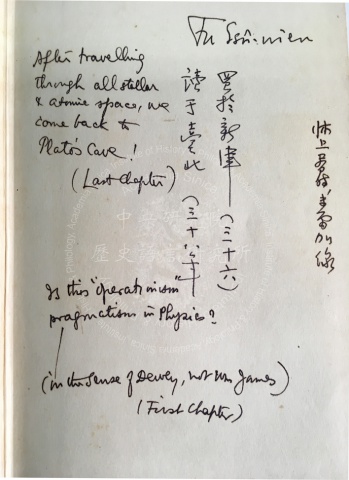 Fu Ssŭ-nien
After travelling
through all stellar
& atomic space, we
come back to
Plato's Cave!
(Last Chapter)
買於新 (三十六)
讀于 (三十八年
Is this "operationism"
pragmatism in Physics?
(in the Sense of Dewey, not Wm James)
(First Chapter)
歷史語言研究所